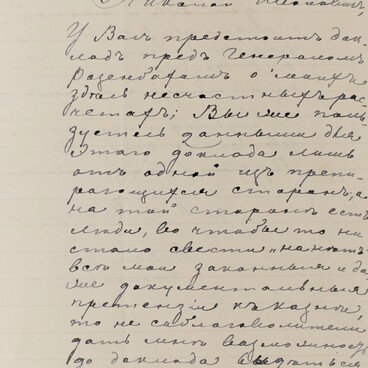 У Васъ предстоитъ док-
ладъ предъ Генераломъ
Розенбахомъ о моихъ
здѣсь несчастныхъ рас-
четахъ; Вы же поль-
зуетесь данными для
этого доклада лишь
отъ одной изъ препи-
рающихся сторонъ; а
на той сторонѣ есть
люди, во чтобы то ни
стало свести „на нѣтъ“
всѣ мои законныя и да-
же документальныя
претензіи къ казнѣ,
то не соблаговолите ли
дать мнѣ возможность
до доклада видѣться